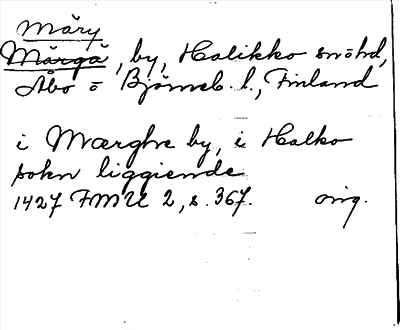 Märy
Märgä, by, Halikko snöhd,
Åbo o Björneb. l., Finland
i Mærghe by, i Halko
sokn liggiende
1427 FMU 2, s. 367. orig.